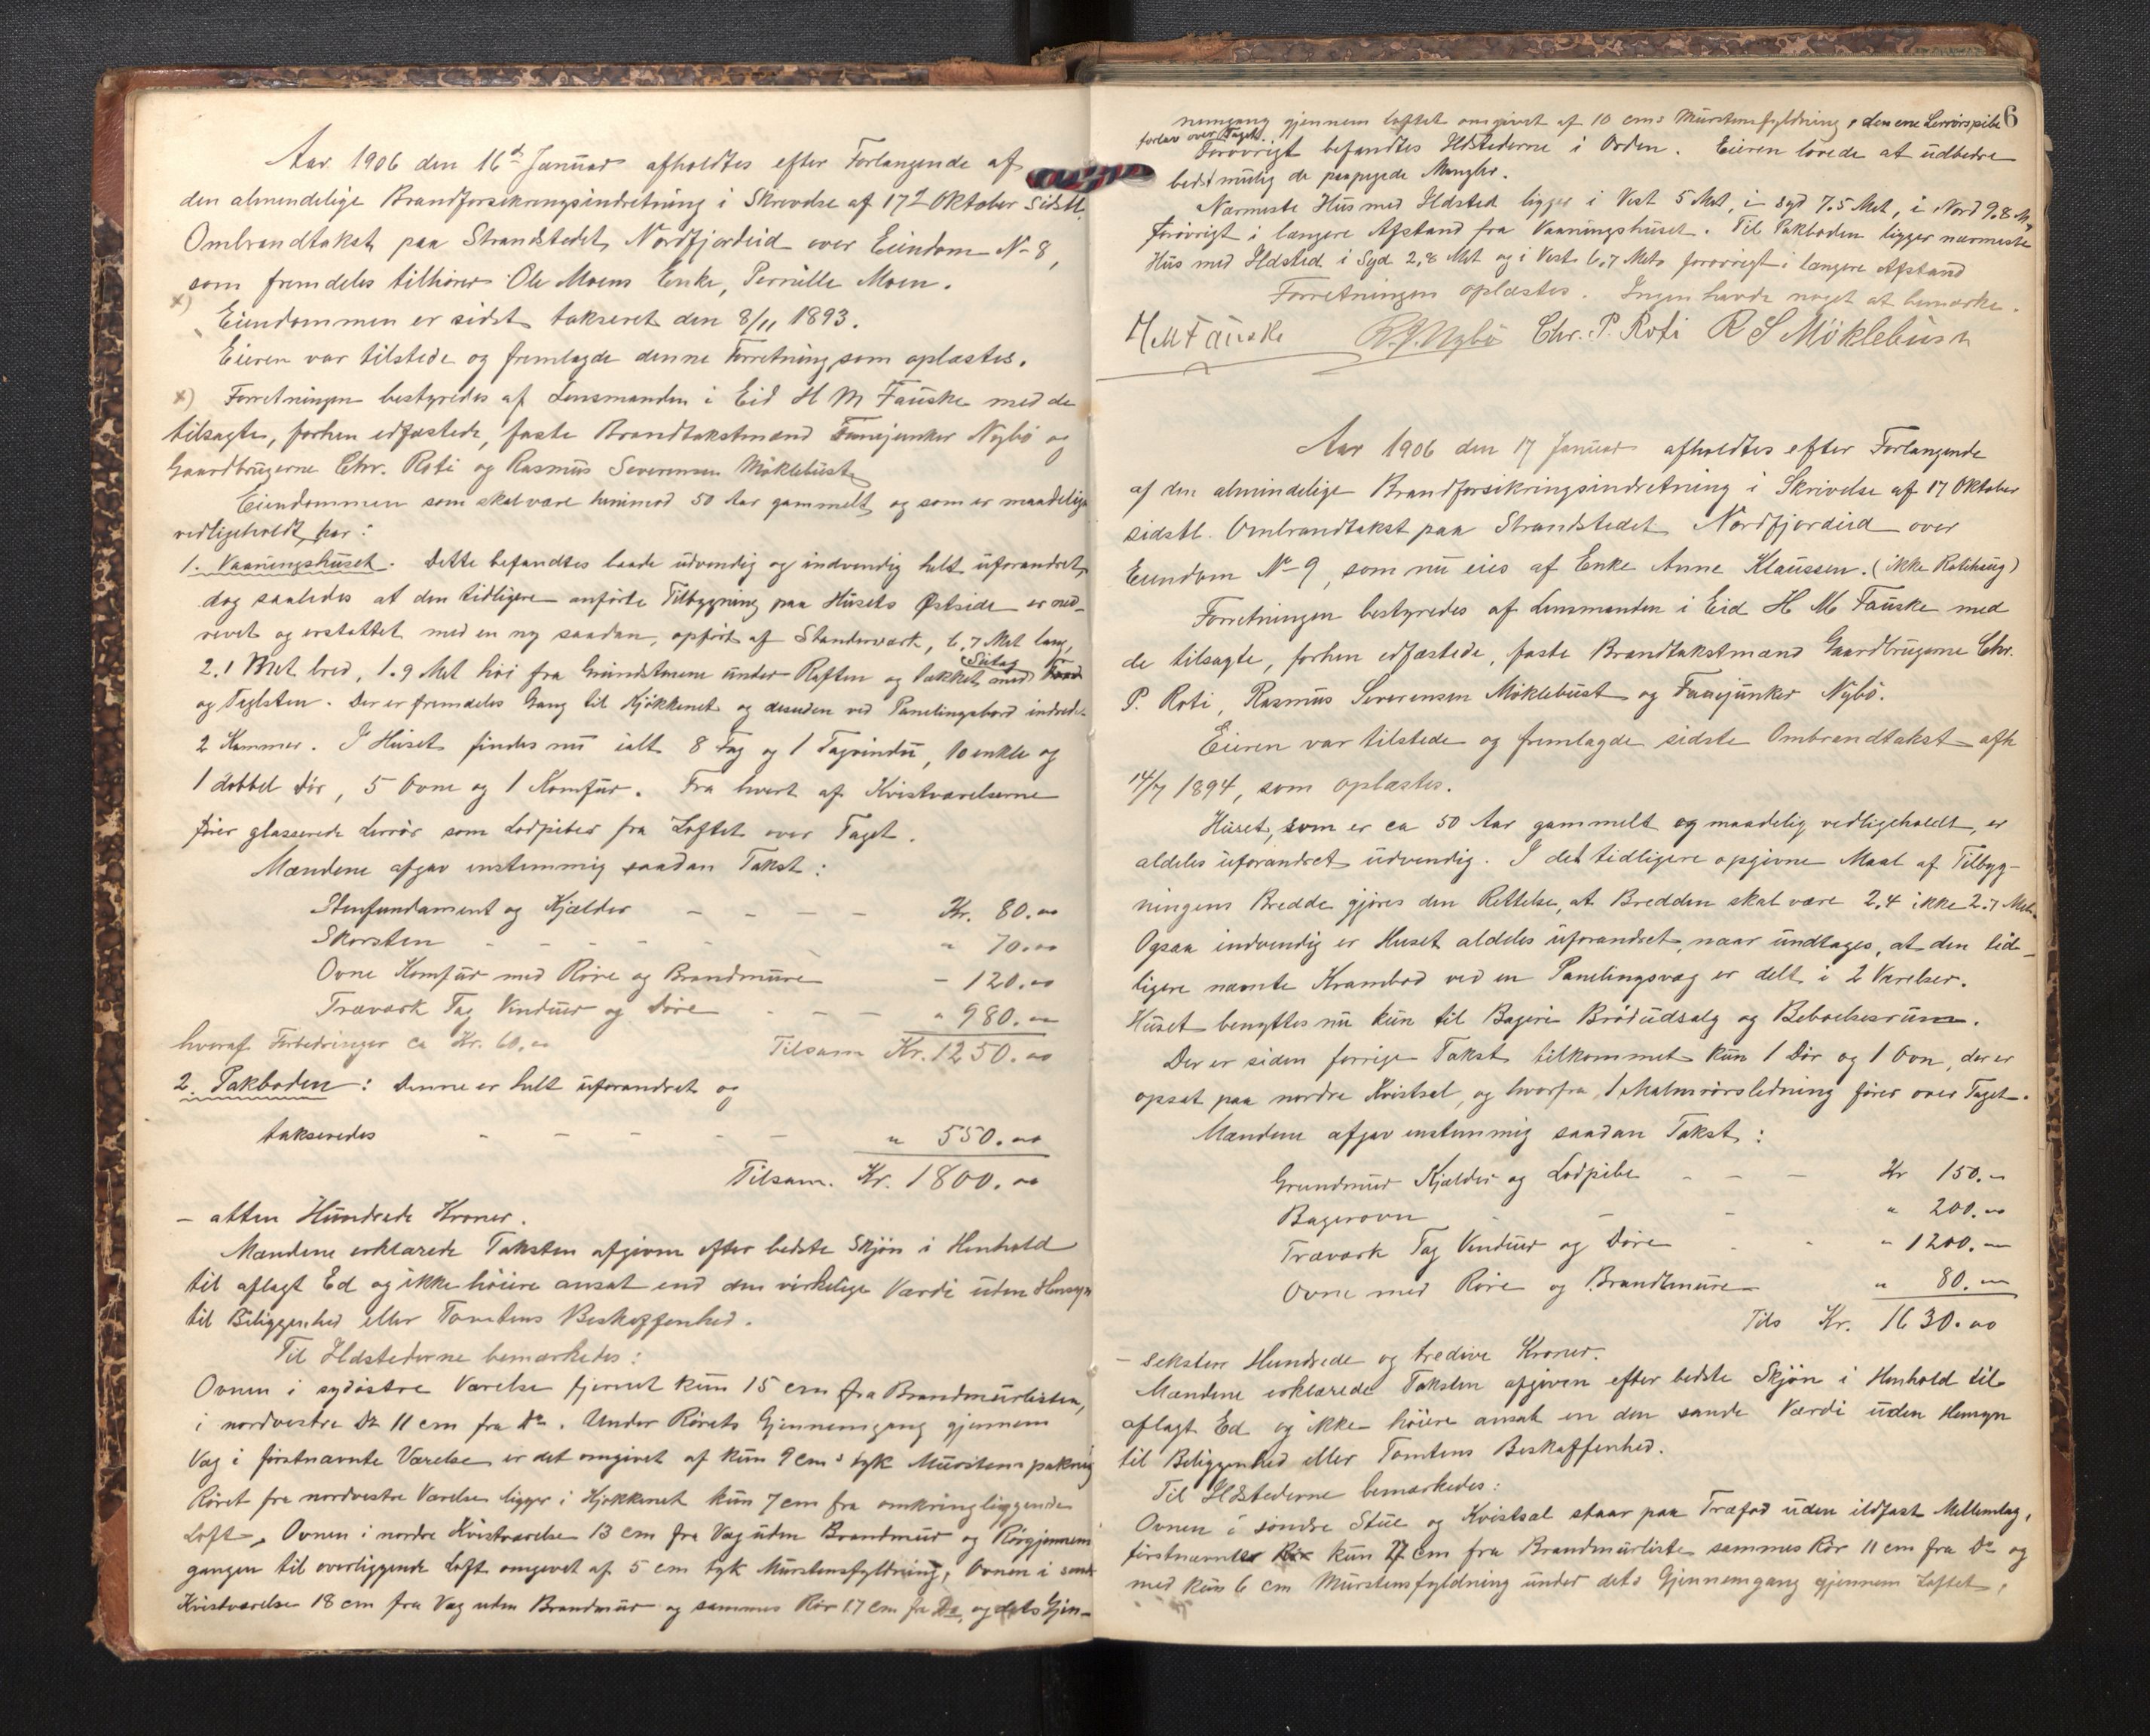 Aar 1906 den 16d Januar afholdtes efter Forlangende af
den almendelige Brandforsikringsindretning i Skrivelse af 17d Oktober sidstl.
Ombrandtakst paa Strandstedet Nordfjordeid over Eiendom No 8,
som fremdeles tilhører Ole Moens Enke, Pernille Moen.
x) Eiendommen er sidst takseret den 8/11 1893.
Eieren var tilstede og fremlagde denne Forretning som oplæstes.
x) Forretningen bestyredes af Lensmanden i Eid H M Fauske med de
tilsagte, forhen edfæstede, faste Brandtakstmænd Fanejunker Nybø og
Gaardbrugerne Chr. Roti og Rasmus Severensen Møklebust
Eiendommen som skal være henimod 50 Aar gammelt og som er maadelig
vedligeholdt har:
1. Vaaningshuset. Dette befandtes baade udvendig og indvendig helt uforandret,
dog saaledes at den tidligere anførte Tilbygning paa Husets Østside er ned-
revet og erstattet med en ny saadan, opført af Standerværk, 6,7 Met lang,
2.1 Met bred, 1.9 Met høi fra Grundstenene under Raften og takket med
og Teglsten. Der er fremdeles Gang til Kjøkkenet og desuden ved Panelingsbord indredet
2 Kammer. I Huset findes nu ialt 8 Fag og 1 Tagvindu, 10 enkle og
1 dobbel Dør, 5 Ovne og 1 Komfur. Fra hvert af Kvistværelserne
fører glasserede Lerrør som Lodpiber fra Loftet over Taget.
Mændene afgav enstemmig saadan Takst:
Stenfundament og Kjælder - - - - Kr. 80.00
Skorsten - - - - - " 70.00
Ovne Komfur med Røre og Brandmure - 120.00
Træværk Tag Vinduer og Døre - - - " 980.00
hveraf Forbedringer ca Kr. 60.00 Tilsam Kr. 1250.00
2. Pakboden: Denne er helt uforandret og
takseredes - - - - - " 550.00
Tilsam. Kr. 1800.00
- atten Hundrede Kroner.
Mændene erklærede Taksten afgiven efter bedste Skjøn i Henhold
til aflagt Ed og ikke høiere ansat end den virkelige Værdi uden Hensyn
til Beliggenhed eller Tomtens Beskaffenhed.
Til Ildstederne bemærkedes:
Ovnen i sydøstre Værelse fjernet kun 15 cm fra Brandmurlisten,
i nordvestre Do 11 cm fra Do. Under Rørets Gjennemgang gjennem
Væg i førstnævnte Værelse er det omgivet af kun 9 cm's tyk Murstenspakning
Røret fra nordvestre Værelse ligger i Kjøkkenet kun 7 cm fra omkringliggende
Loft, Ovnen i nordre Kvistværelse 13 cm fra Væg uden Brandmur og Rørgjennem
gangen til overliggende Loft omgivet af 5 cm tyk Murstensfyldning, Ovnen i søndre
Kvistværelse 18 cm fra Væg uden Brandmur og sammes Rør 17 cm fra Do, og dets Gjen-
6
nemgang gjennem Loftet omgivet af 10 cms Murstensfyldning, den ene Lerrørspibe
for lav over Taget.
Forøvrigt befandtes Ildstederne i Orden. Eieren lovede at udbedre
bedst mulig de paapegede Mangler.
Nærmeste Hus med Ildsted ligger i Vest 5 Met, i Syd 7.5 Met, i Nord 9.8 M,
forøvrigt i længere Afstand fra Vaaningshuset. Til Pakboden ligger nærmeste
Hus med Ildsted i Syd 2,8 Met og i Vest 6,7 Met, forøvrigt i længere Afstand
Forretningen oplæstes. Ingen havde noget at bemærke.
H M Fauske R.J. Nybø Chr. P. Roti R S Møklebust
Aar 1906 den 17 Januar afholdtes efter Forlangende
af den almindelige Brandforsikringsindretning i Skrivelse af 17 Oktober
sidstl. Ombrandtakst paa Strandstedet Nordfjordeid over
Eiendom No 9, som nu eies af Enke Anne Klaussen. (ikke Rotihaug)
Forretningen bestyredes af Lensmanden i Eid H M Fauske med
de tilsagte, forhen edfæstede, faste Brandtakstmænd Gaardbrugerne Chr.
P. Roti, Rasmus Severensen Møklebust og Fanejunker Nybø.
Eieren var tilstede og fremlagde sidste Ombrandtakst afh
14/7 1894, som oplæstes.
Huset, som er ca 50 Aar gammelt og maadelig vedligeholdt, er
aldeles uforandret udvendig. I det tidligere opgivne Maal af Tilbyg-
ningens Bredde gjøres den Rettelse, at Bredden skal være 2,4 ikke 2.7 Met.
Ogsaa indvendig er Huset aldeles uforandret, naar undtages, at den tid-
ligere nævnte Krambod ved en Panelingsvæg er delt i 2 Værelser.
Huset benyttes nu kun til Bageri Brødudsalg og Beboelsesrum.
Der er siden forrige Takst tilkommet kun 1 Dør og 1 Ovn, der er
opsat paa nordre Kvistsal, og hvorfra 1 Malmrørsledning fører over Taget.
Mændene afgav enstemmig saadan Takst:
Grundmur Kjælder og Lodpibe - - - Kr 150.-
Bagerovn - - - " 200.00
Træværk Tag Vinduer og Døre - - " 1200.-
Ovne med Røre og Brandmure " 80.-
Tils Kr. 1630.00
- seksten Hundrede og tredive Kroner.
Mændene erklærede Taksten afgiven efter bedste Skjøn i Henhold til
aflagt Ed og ikke høiere ansat en den sande Værdi uden Hensyn
til Beliggenhed eller Tomtens Beskaffenhed.
Til Ildstederne bemærkedes:
Ovnen i søndre Stue og Kvistsal staar paa Træfod uden ildfast Mellemlag,
førstnævntes kun 27 cm fra Brandmurliste sammes Rør 11 cm fra Do og
med kun 6 cm Murstensfyldning under dets Gjennemgang gjennem Loftet,